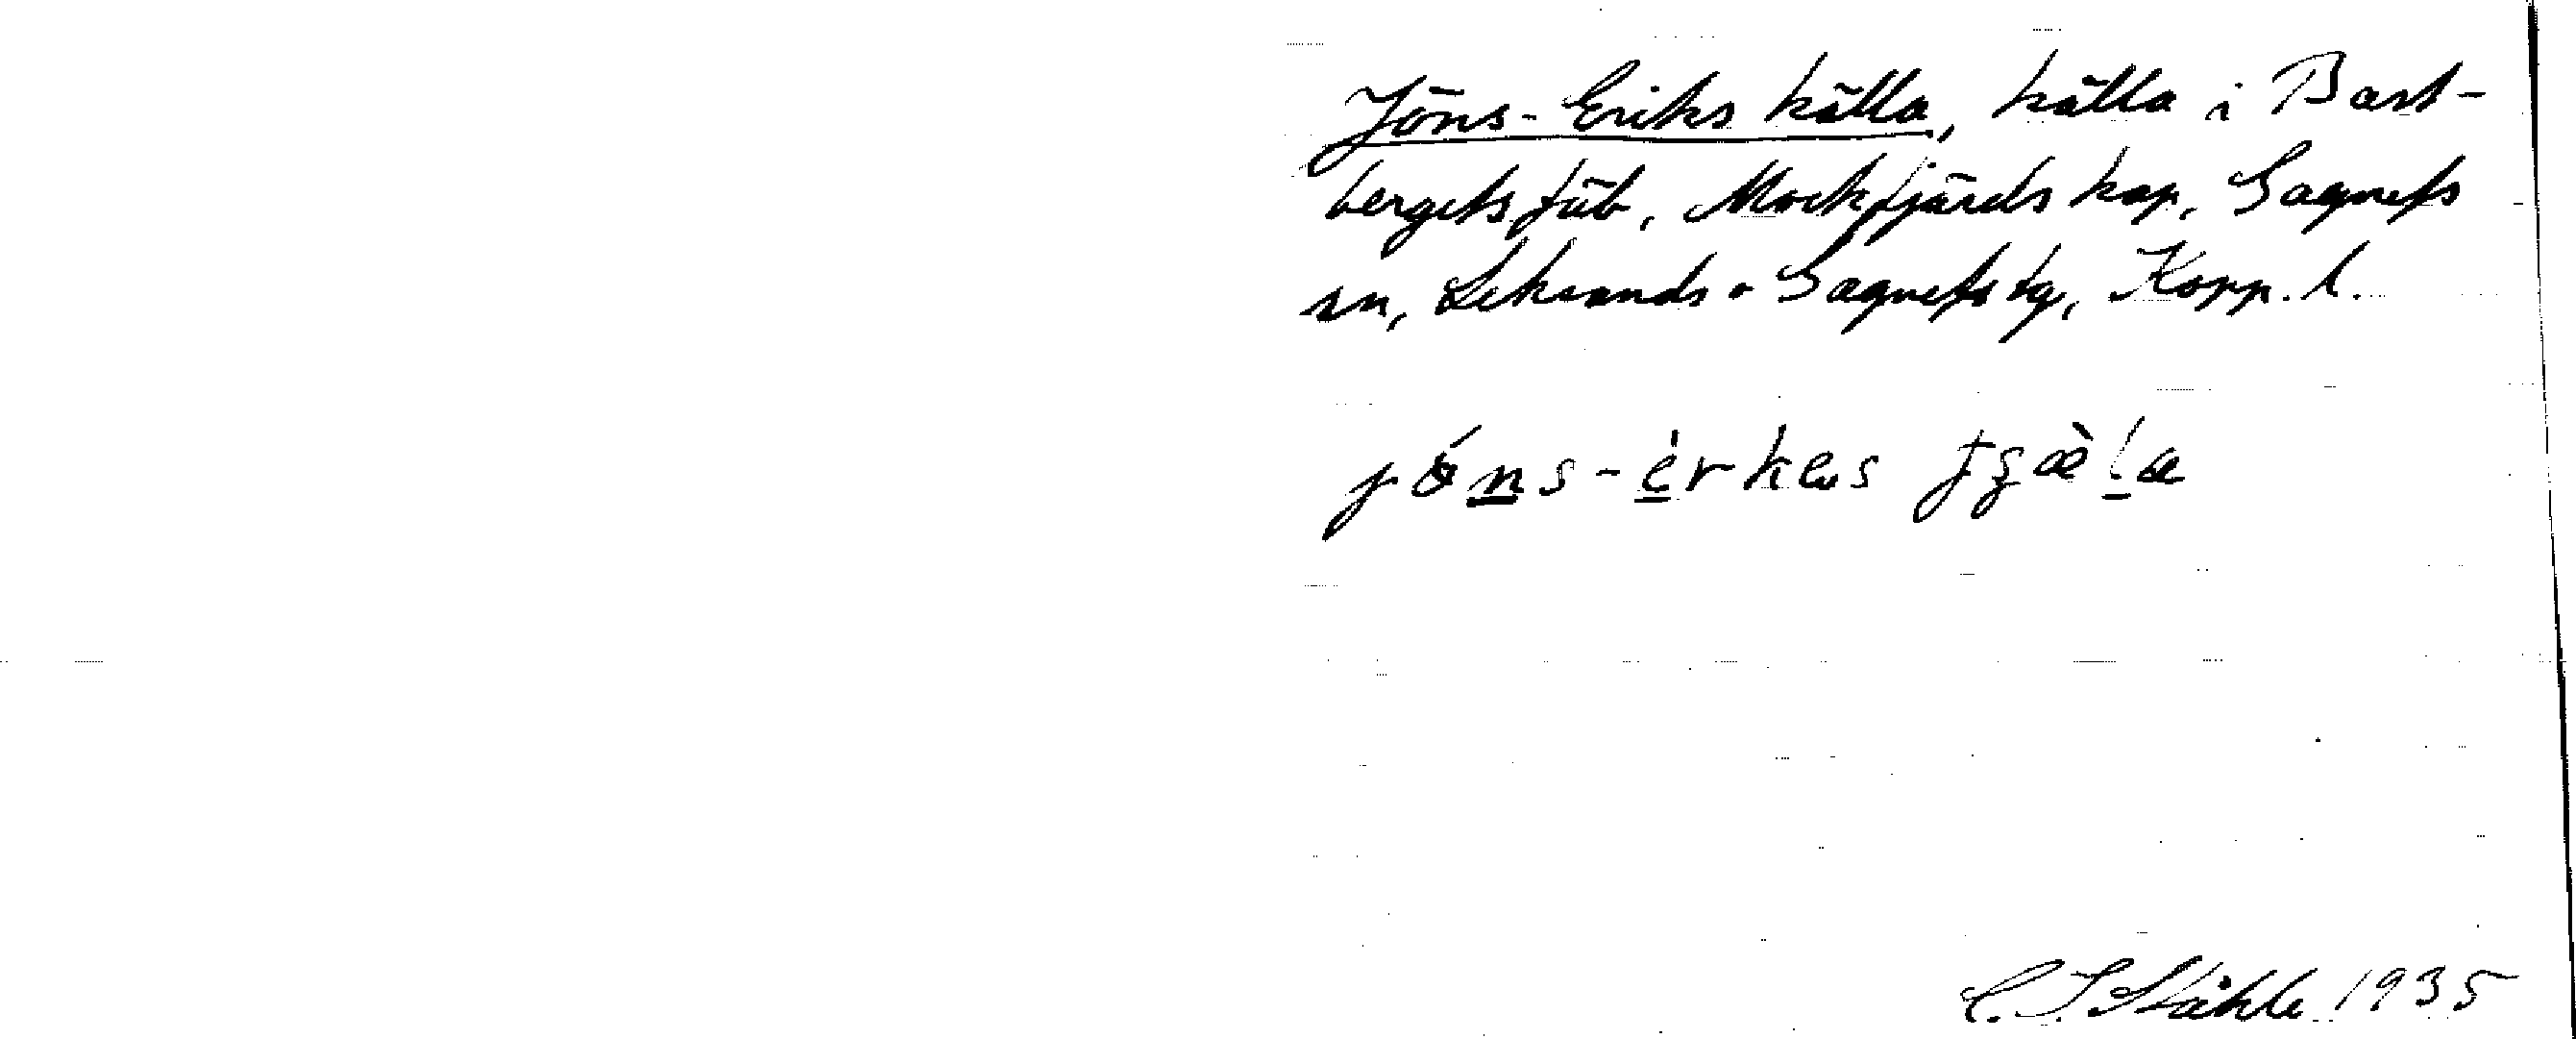 Jöns-Eriks källa, källa i Bast-
bergets fäb, Mockfjärds kap, Gagnefs
sn, Leksands o Gagnefs tg, Kopp. l.
jöns-èrkes
C. I. Ståhle 1935